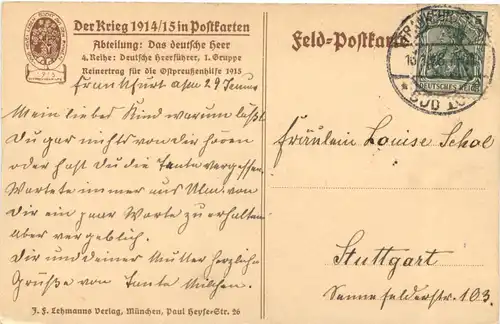 Der Krieg 1914/15 in Postkarten
Abteilung: Das deutsche Heer
4. Reihe: Deutsche Heerführer, 1. Gruppe
Reinertrag für die Ostpreußenhilfe 1915
Feld-Postkarte
DEUTSCHES REICH
Frankfurt a/m 29
Mein liebes Kind warum läßt
Du gar nichts von dir hören
oder hast du die Tante vergessen.
Wartete immer aus Ulm von
Dir ein paar Worte zu erhalten
aber vergeblich.
Dir und deiner Mutter herzliche
Grüße von Tante
Fräulein Louise Schol
Stuttgart
Sennefelderstr 103.
J. F. Lehmanns Verlag, München, Paul Heyse-Str. 26